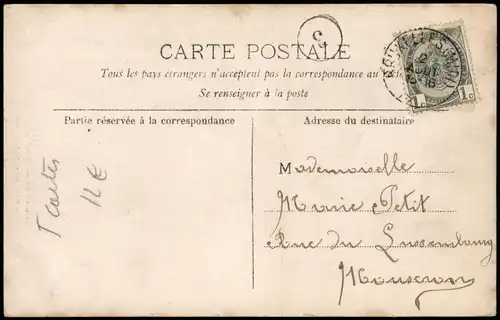 3
CARTE POSTALE
Tous les pays étrangers n'acceptent pas la correspondance au
Se renseigner à la poste
Partie réservée à la correspondance
Adresse du destinataire
1c 1c
Mademoiselle
Marie Petit
Rue du Luxembourg
Mouscron
T cartes
12€